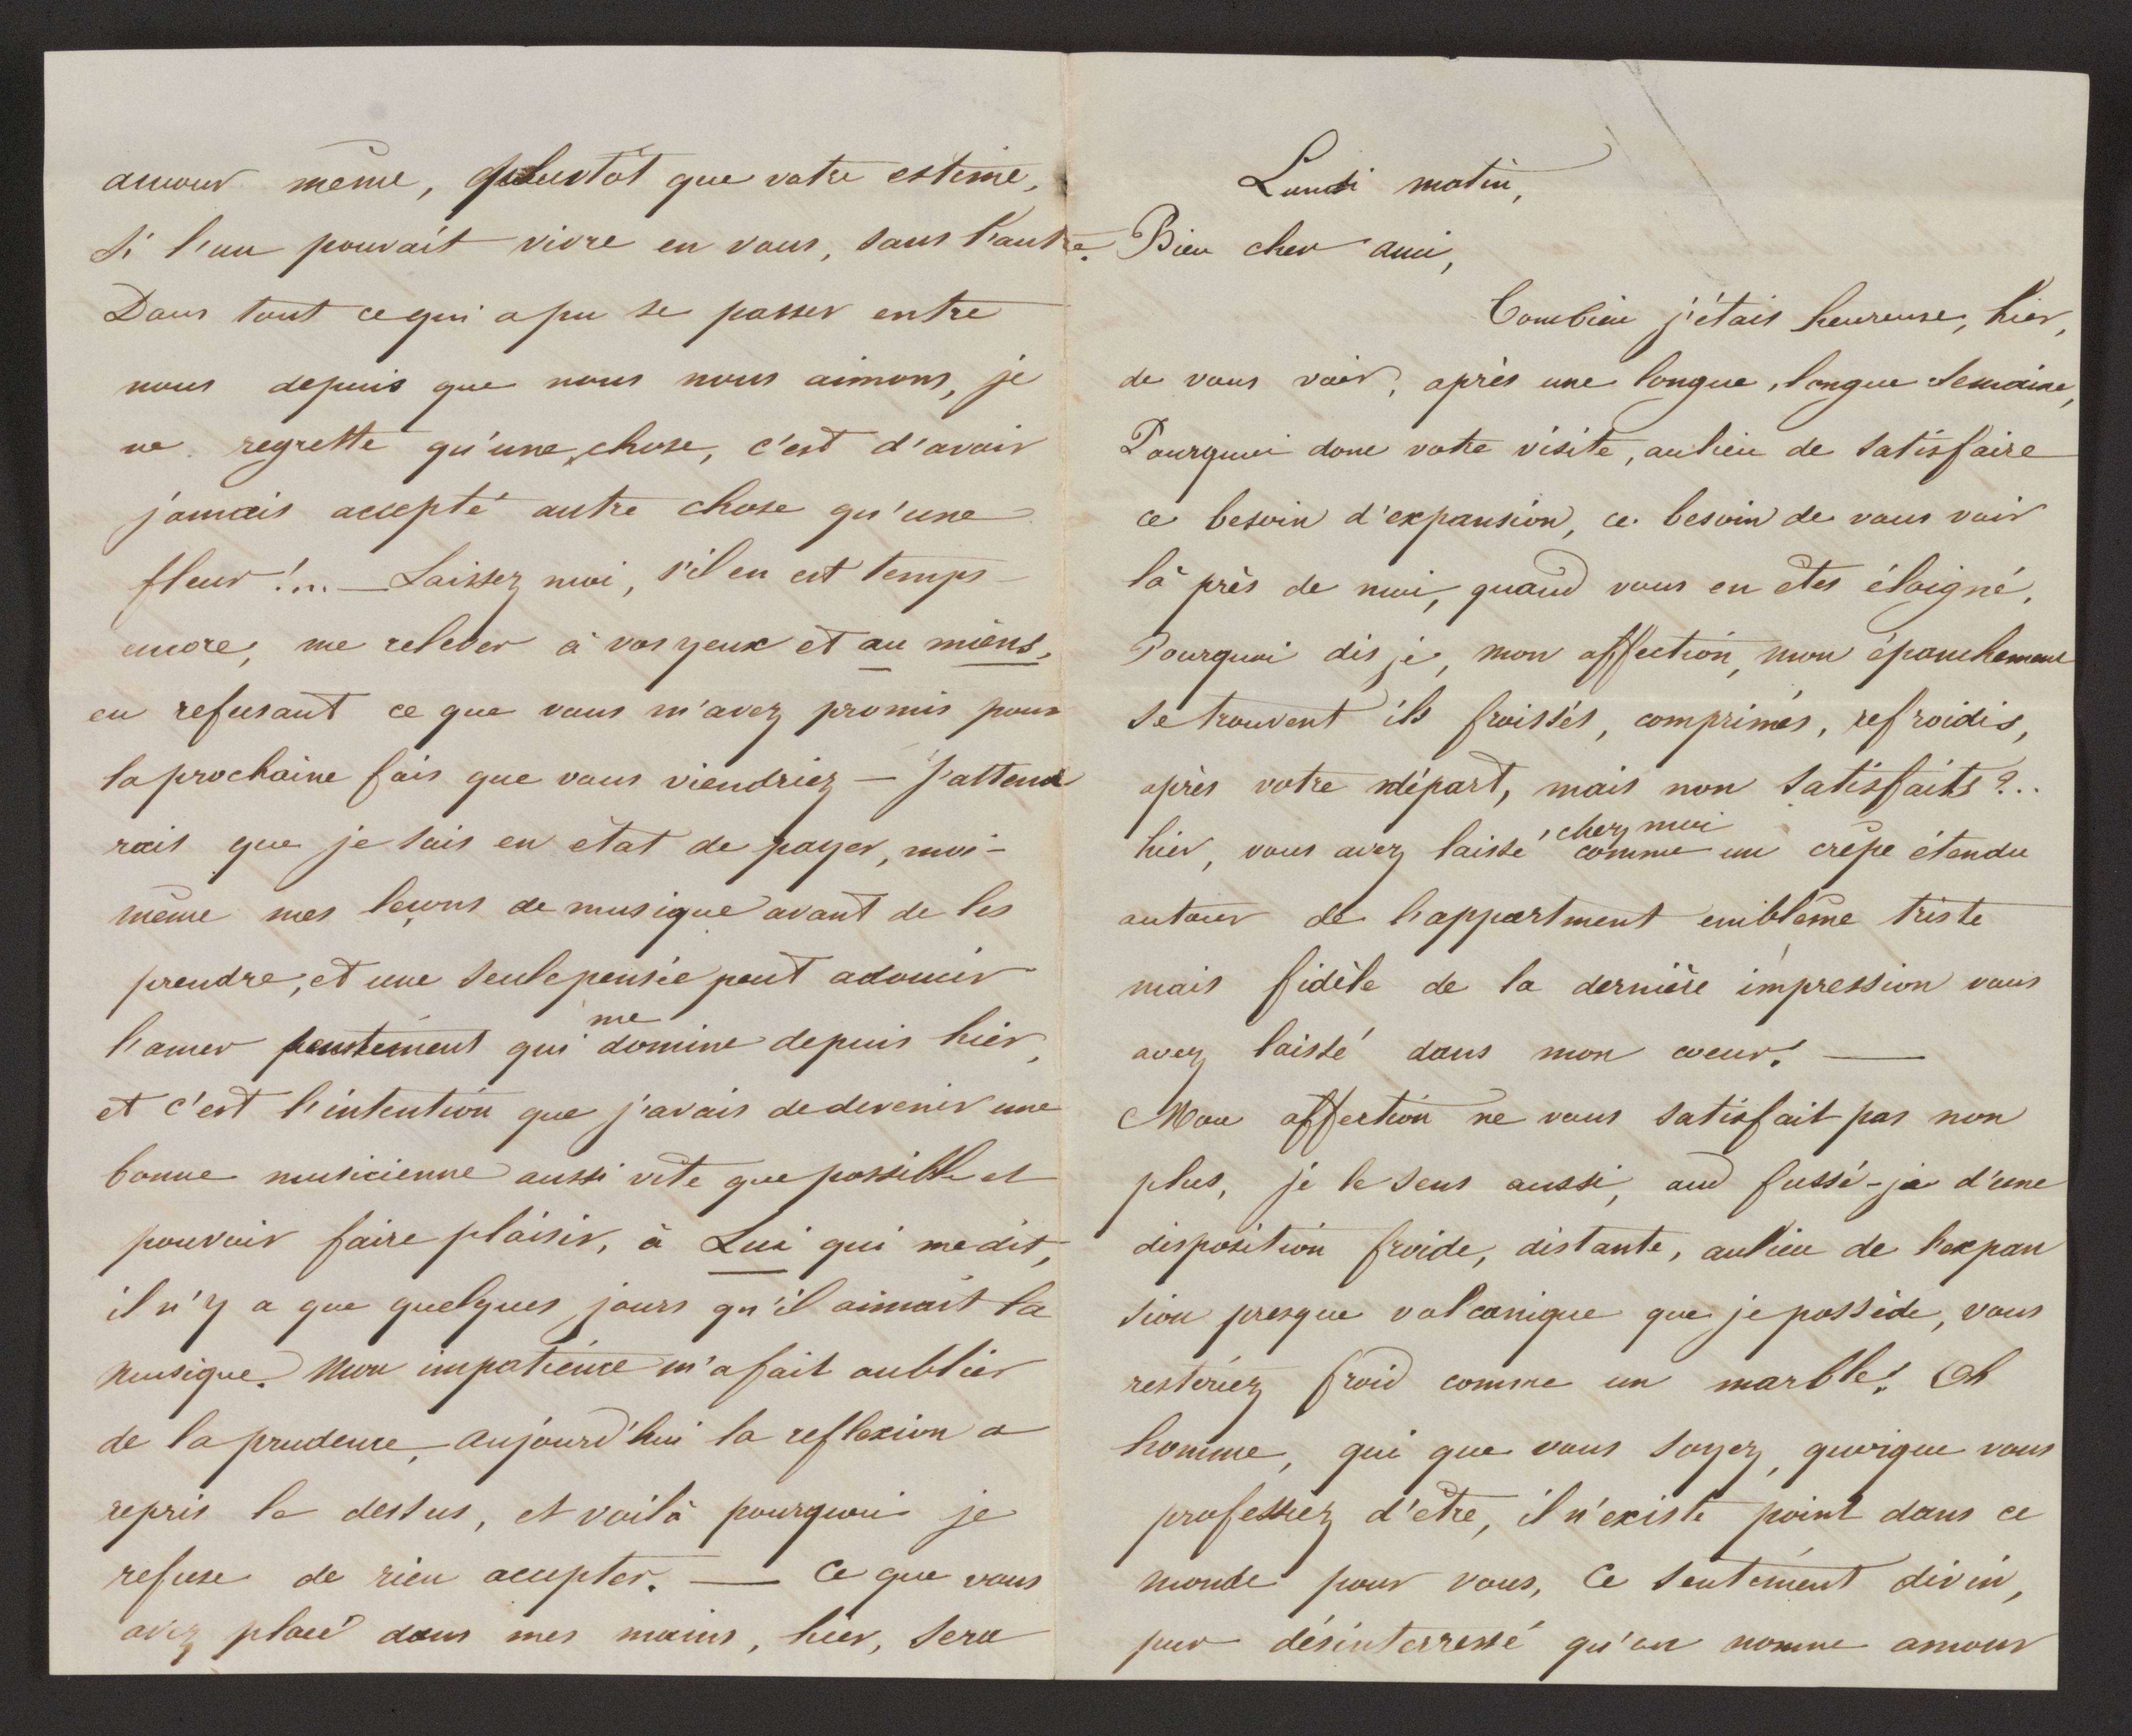 amour même, plustôt que votre estime,
Si l'un pouvait vivre en vous, sans l'autre.
Dans tout ce qui a pu se passer entre
nous depuis que nous nous aimons, je
ne regrette qu'une chose, c'est d'avoir
jamais accepté autre chose qu'une
fleur!... — Laissez moi, s'il en est temps
encore, me relever à vos yeux et au miens,
en refusant ce que vous m'avez promis pour
la prochaine fois que vous viendriez — J'attend
rais que je sois en état de payer, moi-
même mes leçons de musique avant de les
prendre, et une seule pensée peut adoucir
l'amer sentiment qui me domine depuis hier,
et c'est l'intention que j'avais de devenir une
bonne musicienne aussi vite que possible et
pouvoir faire plaisir, à Lui qui me dit,
il n'y a que quelques jours qu'il aimait la
musique. Mon impatience m'a fait oublier
de la prudence, aujourd'hui la reflexion a
repris le dessus, et voilà pourquoi je
refuse de rien accepter. — Ce que vous
avez placé dans mes mains, hier, sera
Lundi matin,
Bien cher ami,
Combien j'étais heureuse, hier,
de vous voir, après une longue, longue semaine,
Pourquoi donc votre visite, aulieu de satisfaire
ce besoin d'expansion, ce besoin de vous voir
là près de moi, quand vous en êtes éloigné,
Pourquoi dis je, mon affection, mon épanchement
se trouvent ils froissés, comprimés, refroidis,
après votre départ, mais non satisfaits?..
hier, vous avez laissé chez moi comme un crêpe étendu
autour de l'appartment emblême triste
mais fidèle de la dernière impression vous
avez laissé dans mon coeur! —
Mon affection ne vous satisfait pas non
plus, je le sens aussi, fussé-je d'une
disposition froide, distante, aulieu de l'expan
sion presque volcanique que je possède, vous
resteriez froid comme un marble! Oh
homme, qui que vous soyez, quoique vous
professiez d'être, il n'existe point dans ce
monde pour vous, Ce sentiment divin,
pur désinterressé qu'on nomme amour